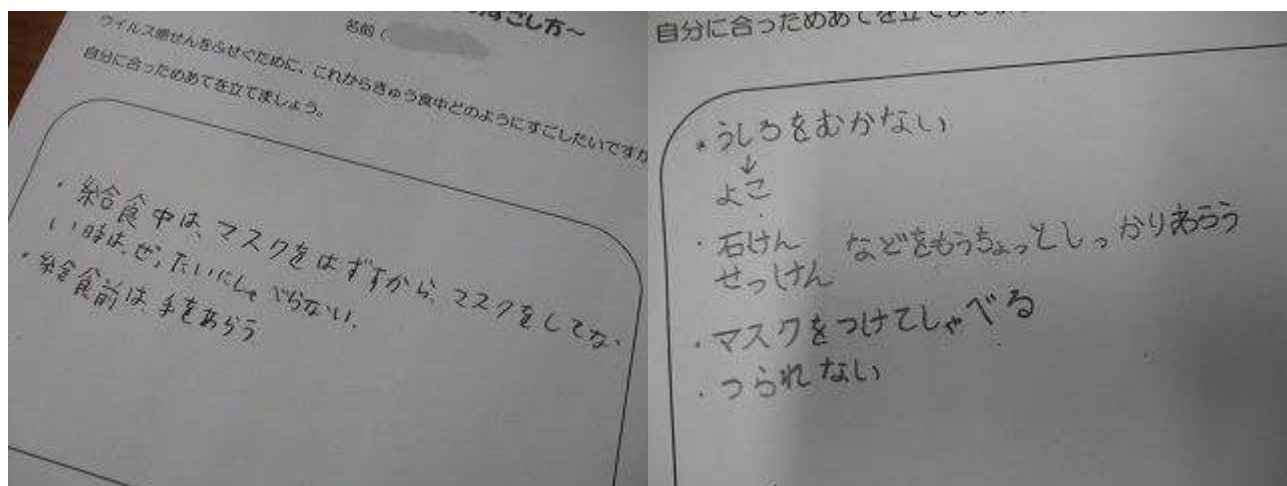 すごし方～
名前（
ウイルス感せんをふせぐために、これからきゅう食中どのようにすごしたいですか
自分に合っためあてを立てましょう。
・給食中は、マスクをはずすから、マスクをしてな
い時は、ぜったいにしゃべらない。
・給食前は、手をあらう
自分に合っためあてを立てましょ
・うしろをむかない
↓
よこ
・石けん などをもうちょっとしっかりあらう
せっけん
・マスクをつけてしゃべる
・つられない